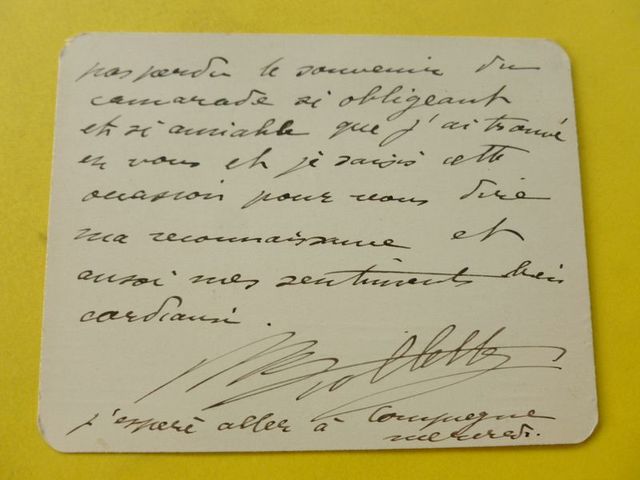 pas perdu le souvenir du
camarade si obligeant
et si aimable que j'ai trouvé
en vous et je saisis cette
occasion pour vous dire
ma reconnaissance et
aussi mes sentiments bien
cordiaux.
j'espère aller à Compiègne
mercredi.